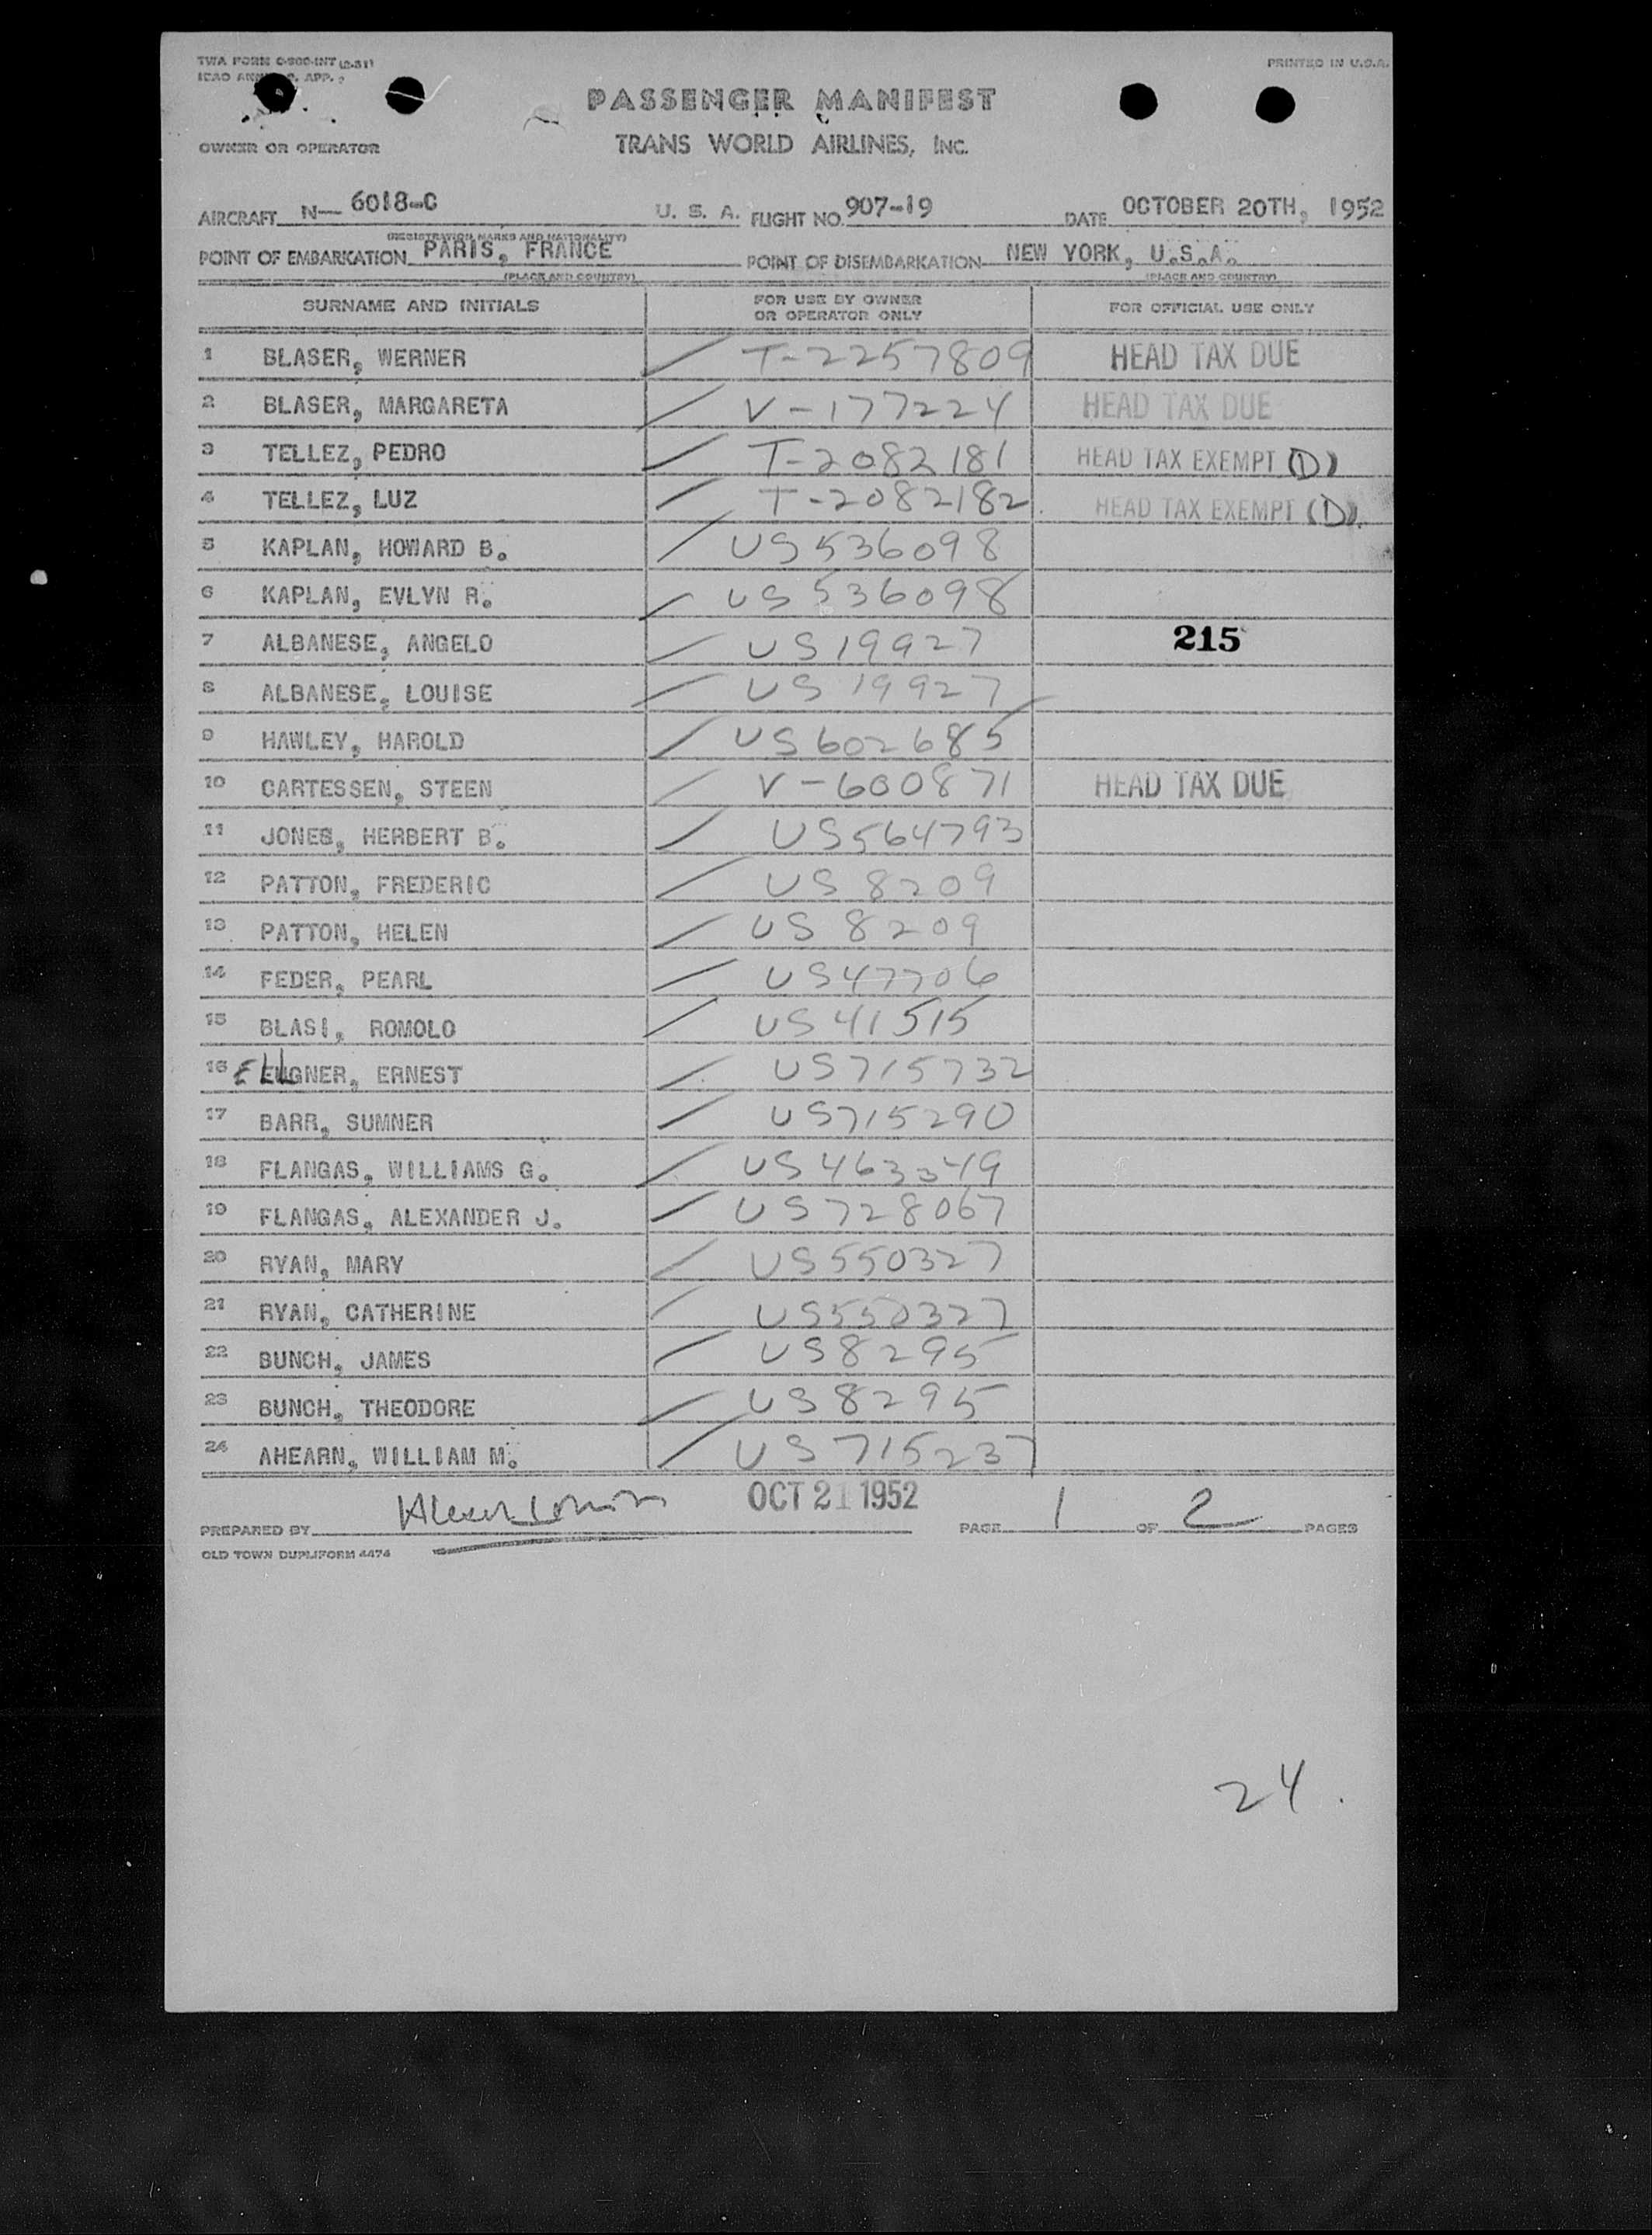 TWA FORM
PRINTED IN U.S.A.
PASSENGER MANIFEST
OWNER OR OPERATOR
TRANS WORLD AIRLINES, INC.
AIRCRAFT N— 6018-C U. S. A. FLIGHT NO. 907-19 DATE OCTOBER 20TH, 1952
(REGISTRATION MARKS AND NATIONALITY)
POINT OF EMBARKATION PARIS, FRANCE POINT OF DISEMBARKATION NEW YORK, U.S.A.
(PLACE AND COUNTRY) (PLACE AND COUNTRY)
SURNAME AND INITIALS FOR USE BY OWNER OR OPERATOR ONLY FOR OFFICIAL USE ONLY
1 BLASER, WERNER T-2257809 HEAD TAX DUE
2 BLASER, MARGARETA V-177224 HEAD TAX DUE
3 TELLEZ, PEDRO T-2082181 HEAD TAX EXEMPT (D)
4 TELLEZ, LUZ T-2082182 HEAD TAX EXEMPT (D)
5 KAPLAN, HOWARD B. US 536098
6 KAPLAN, EVLYN R. US 536098
7 ALBANESE, ANGELO US 19927 215
8 ALBANESE, LOUISE US 19927
9 HAWLEY, HAROLD US 602685
10 CARTESSEN, STEEN V-600871 HEAD TAX DUE
11 JONES, HERBERT B. US 564793
12 PATTON, FREDERIC US 8209
13 PATTON, HELEN US 8209
14 FEDER, PEARL US 47706
15 BLASI, ROMOLO US 41515
16 ELLGNER, ERNEST US 715732
17 BARR, SUMNER US 715290
18 FLANGAS, WILLIAMS G. US 463349
19 FLANGAS, ALEXANDER J. US 728067
20 RYAN, MARY US 550327
21 RYAN, CATHERINE US 550327
22 BUNCH, JAMES US 8295
23 BUNCH, THEODORE US 8295
24 AHEARN, WILLIAM M. US 715237
OCT 21 1952
PREPARED BY PAGE 1 OF 2 PAGES
OLD TOWN DUPLIFORM 4474
24.